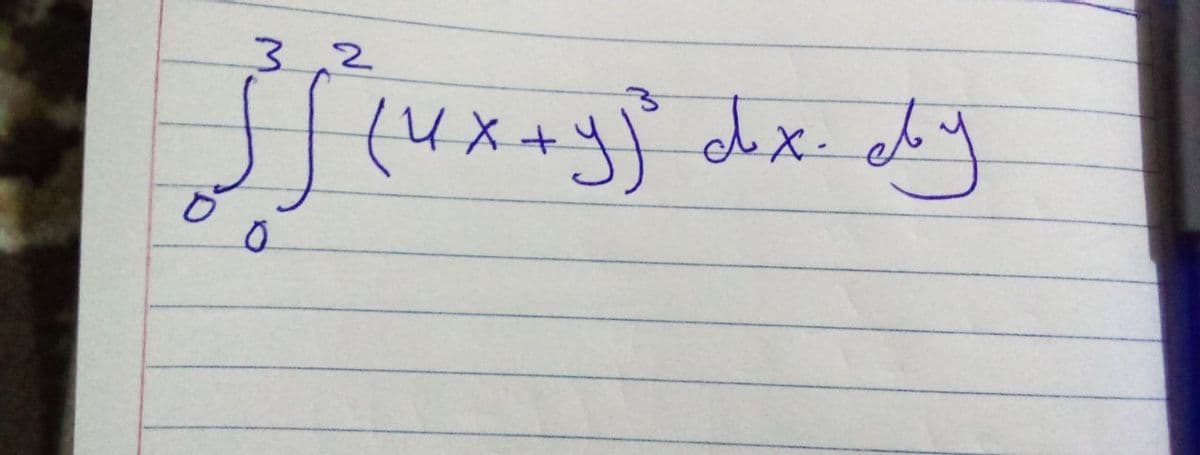 ∫₀³ ∫₀² (4x+y)³ dx. dy